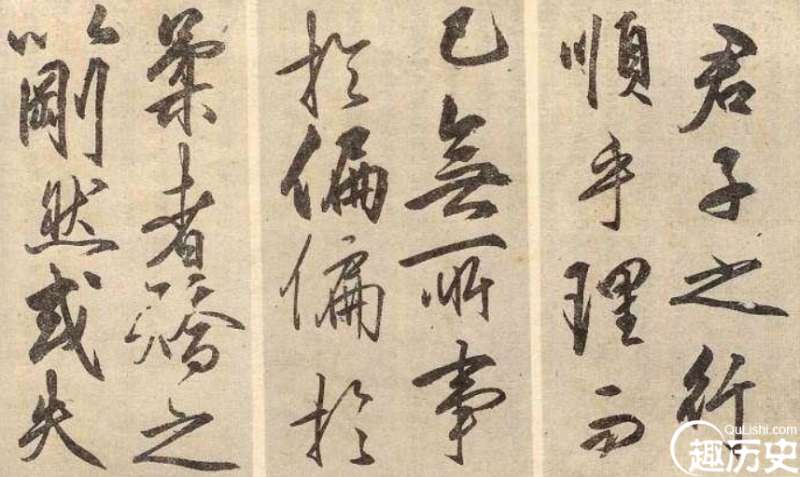 君子之行
順乎理而
已無所事
於偏偏於
柔者矯之
以剛然或失
QuLishi.com
趣历史